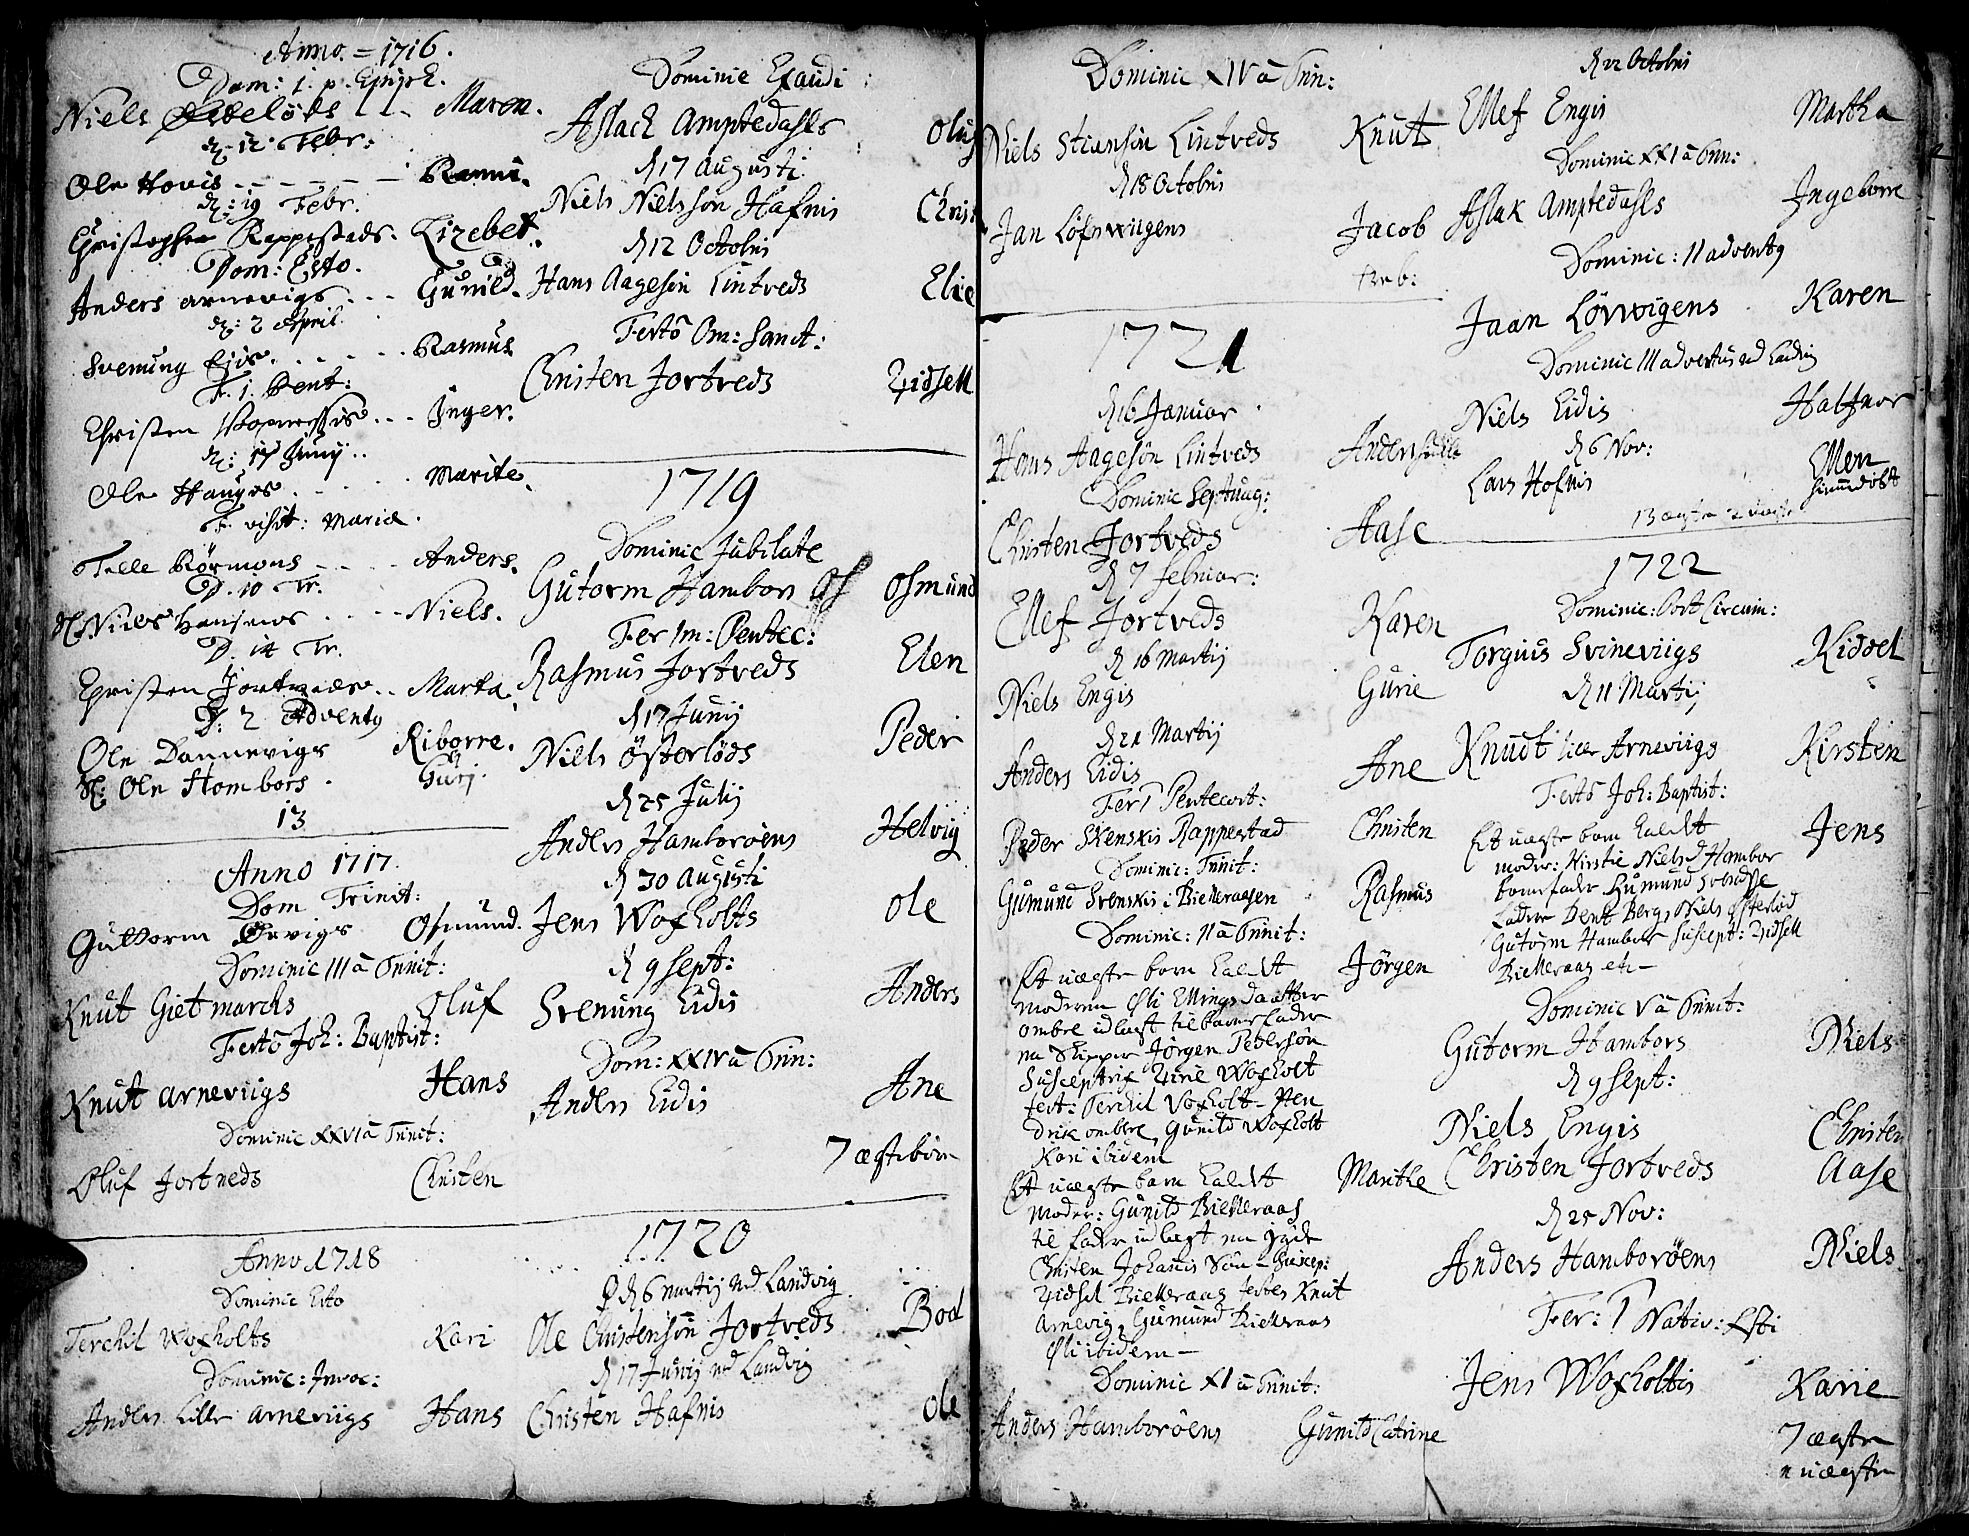 Anno. = 1716.
Dom: 1. p. Epiph.
Niels Østeløds Maren.
d: 12 Febr:
Ole Hovis Rasmus.
d: 19 Febr.
Christopher Rappestads. Lizebet.
Dom: Esto.
Anders arnevigs Gunild.
d: 2 April.
Svenung Eidis Rasmus
F. 1. Pent:
Christen Inger.
d: 17 Junij.
Ole Hauges Marite.
F. visit: Mariæ.
Telle Rörmons Anders.
D. 10 Tr.
Niels Hansens Niels.
D. 14 Tr.
Christen Jortveds Marta.
D: 2 Adventg
Ole Dannevigs Riborre.
Ole Hombors Gurj.
13
Anno 1717.
Dom Trinit:
Guttorm Ørvigs Osmund.
Dominic III a Trinit:
Knut Gietmarchs Oluf
Festo Joh: Baptist:
Knut arneviigs Hans
Dominic XXVI a Trinit:
Oluf Jortveds Christen
Anno 1718
Dominic Esto
Terchil Woxholts Kari
Dominic: Invoc:
Anders Lille arneviigs Hans
Dominic Exaudi
Aslach Amptedahls Oluf
d 17 Augusti
Niels Nielsson Hafnis Christ
d 12 Octobris
Hans Aagesøn Lintveds Elie
Festo Om: Sanct:
Christen Jortveds Zidsell
1719
Dominic Jubilate
Gutorm Hambors Osmund
Fer 1m: Pentec:
Rasmus Jortveds Elen
d 17 Junij
Niels Østerløds Peder
d 25 Julij
Anders Hamborøens Helvig
d 30 Augusti
Jens Woxholts Ole
d 9 Sept:
Svenung Eidis Anders
Dom: XXIV a Trin:
Anders Eidis Ane
7 ægtebørn
1720
d 6 martij ved Landvig
Ole Christensøn Jortveds Boel
d 17 Junij ved Landvig
Christen Hafnis Ole
Dominic XIV a Trin:
Niels Stiansøn Lintveds Knut
d 18 Octobris
Jan Løfswiigens Jacob
1721
d 16 Januar
Hans Aagesøn Lintveds Anders
Dominic Septuag:
Christen Jortveds Aase
d 7 Februar:
Ellef Jortveds Karen
d 16 Martij
Niels Engis Gurie
d 21 Martij
Anders Eidis Ane
Fer 1 Pentecost:
Peder Svenskis Rappestad Christen
Dominic: Trinit:
Gumund Svenskis i Bielleraasen Rasmus
Dominic: II a Trinit:
Et uægte barn kaldt Jørgen
moderen Øli Ellings daatter
ombre udlagt til barnefader
en Skipper Jørgen Pedersøn
Susceptrix Zirie Woxholt
test: Terchil Voxholt
ombre, Gunild Woxholt
Kari ibidem
Et uægte barn kaldt Marithe
moder: Gunild Bielleraas
til fader udlagt en Jyde
Christen Johannis Søn - Suscep:
Zidsel Bielleraas testes Knut
Arnevig, Gumund Bielleraas
Øli ibidem -
Dominic XI a Trinit:
Anders Hamborøens Gunild Catrine
d 22 Octobris
Ellef Engis Martha
Dominic XXI a Trin:
Aslak Amptedahls Ingeborre
Dominic: II adventg
Jaan Løvwigens Karen
Dominic III adventus ved Landvig
Niels Eidis Halfvor
d 6 Nov:
Lars Hofnis Ellen
13 ægte 2 uægte
1722
Dominic: Post Circum:
Torguis Svineviigs Kiddel
d 11 Martij
Knudt Lille Arneviigs Kirsten
Festo Joh: Baptist:
Et uægte barn kaldt Jens
moder: Kirstie Niels d Hambor
barnefader Gumund
Faddere Bent Berg, Niels Østerlød
Gutorm Hambor suscept: Zidsell
Bielleraas etc -
Dominic V a Trinit:
Gutorm Hambors Niels
d 9 Sept:
Niels Engis Christen
Christen Jortveds Aase
d 25 Nov:
Anders Hamborøens Niels
Fer: 1 Nativ: Xsti
Jens Woxholtis Karie
7 ægte
1 uægte